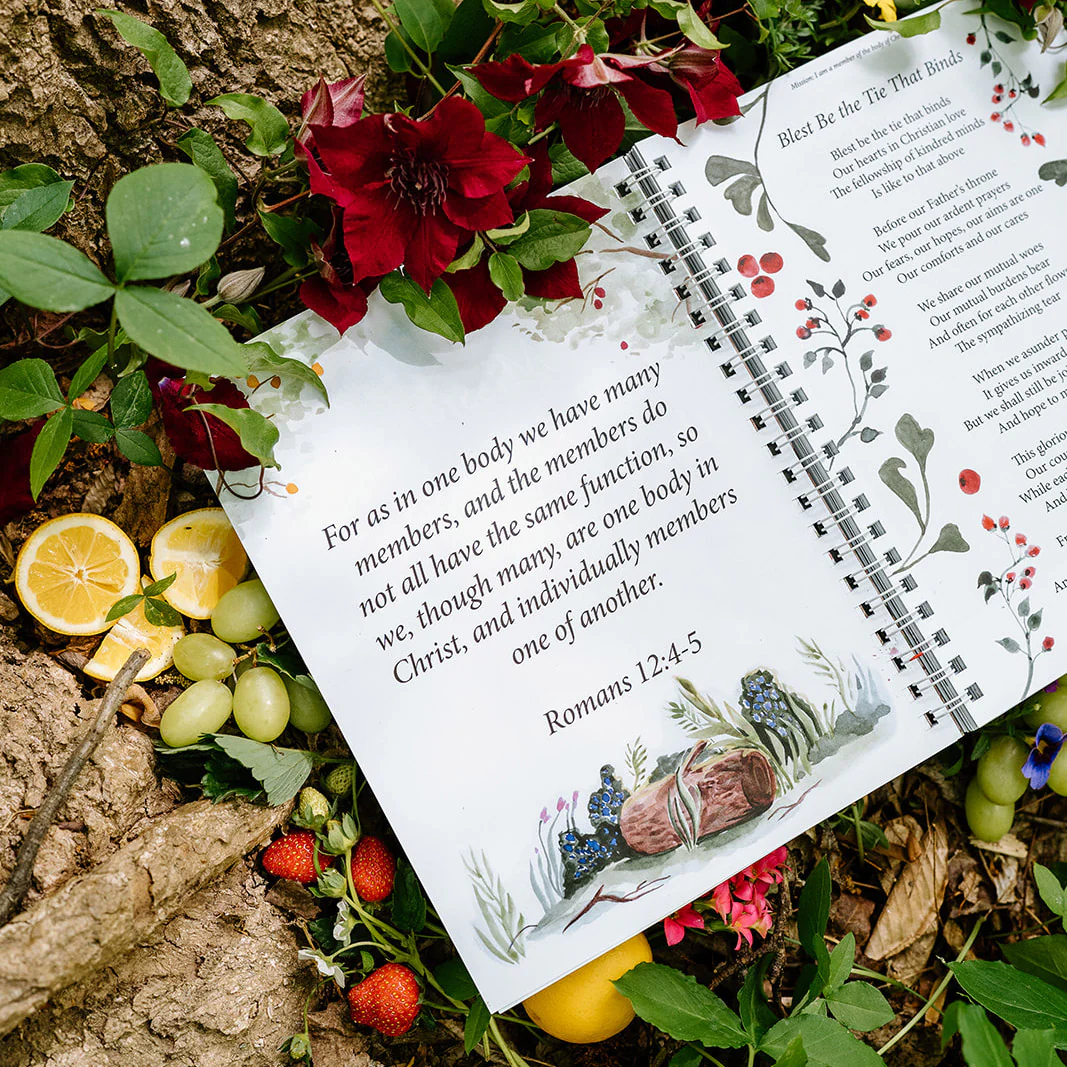 For as in one body we have many
members, and the members do
not all have the same function, so
we, though many, are one body in
Christ, and individually members
one of another.
Romans 12:4-5
Mission: I am a member of the body of
Blest Be the Tie That Binds
Blest be the tie that binds
Our hearts in Christian love
The fellowship of kindred minds
Is like to that above
Before our Father's throne
We pour our ardent prayers
Our fears, our hopes, our aims are one
Our comforts and our cares
We share our mutual woes
Our mutual burdens bear
And often for each other
The sympathizing tear
When we asunder
It gives us inward
But we shall still be
And hope to
This
Our
While
And